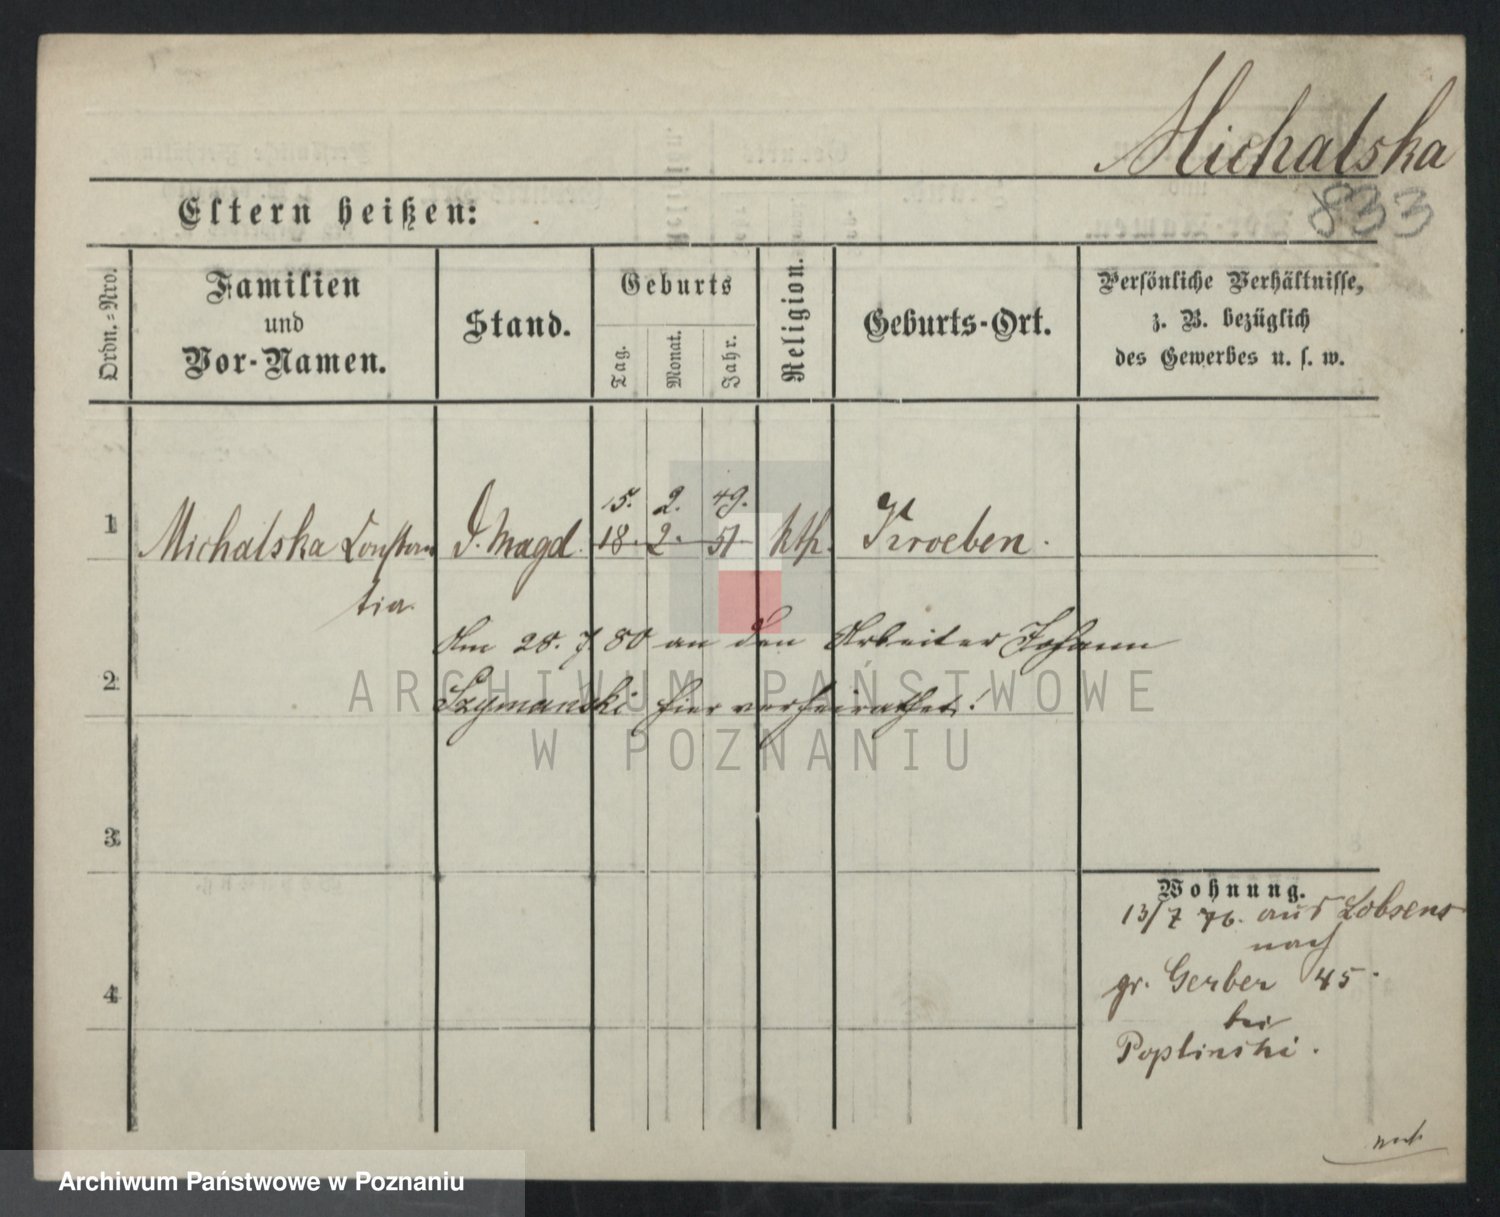 Michalska
833
Eltern heißen:
Ordn.-Nro.
Familien
und
Vor-Namen.
Stand.
Geburts
Tag.
Monat.
Jahr.
Religion.
Geburts-Ort.
Persönliche Verhältnisse,
z. B. bezüglich
des Gewerbes u. s. w.
15. 2. 49.
1 Michalska Constan D. Magd. 18. 2. 51 kth. Kroeben.
tia.
Am 28. 7. 80 an den Arbeiter Johann
2 Szymanski hier verheirathet!
ARCHIWUM PAŃSTWOWE
W POZNANIU
3
Wohnung.
13/7 76. aus Lobsens
nach
gr. Gerber 45.
4
bei
Poplinski.
Archiwum Państwowe w Poznaniu